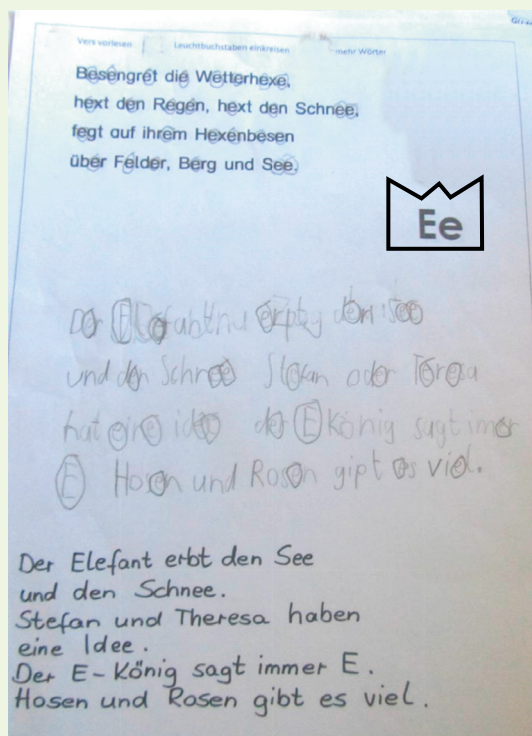 Vers vorlesen Leuchtbuchstaben einkreisen mehr Wörter
Besengret die Wetterhexe,
hext den Regen, hext den Schnee,
fegt auf ihrem Hexenbesen
über Felder, Berg und See.
Ee
Der den See
und den Schnee Stefan oder Teresa
hat eine idee der E König sagt imer
E Hosen und Rosen gipt es viel.
Der Elefant erbt den See
und den Schnee.
Stefan und Theresa haben
eine Idee.
Der E-König sagt immer E.
Hosen und Rosen gibt es viel.